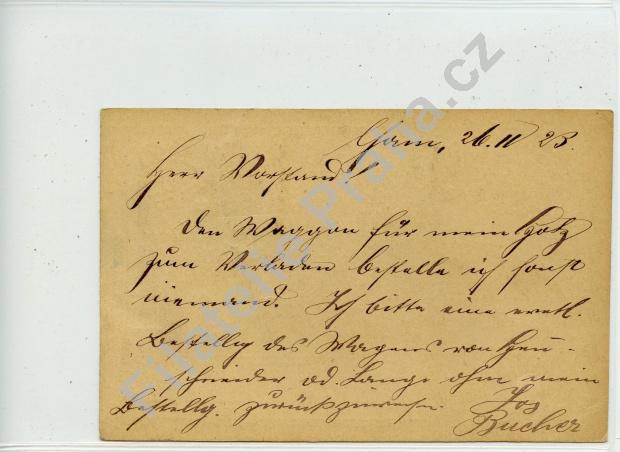 Gam, 26. II 23.
Herr Vorstand!
Den Waggon für mein Holz
zum Verladen bestelle ich sonst
niemand. Ich bitte eine evetl.
Bestellg des Wagens von Heu-
schneider od. Lange ohne mein
Bestellg. zurückzuweisen.
Jos
Bucher
Filatelie Praha.cz